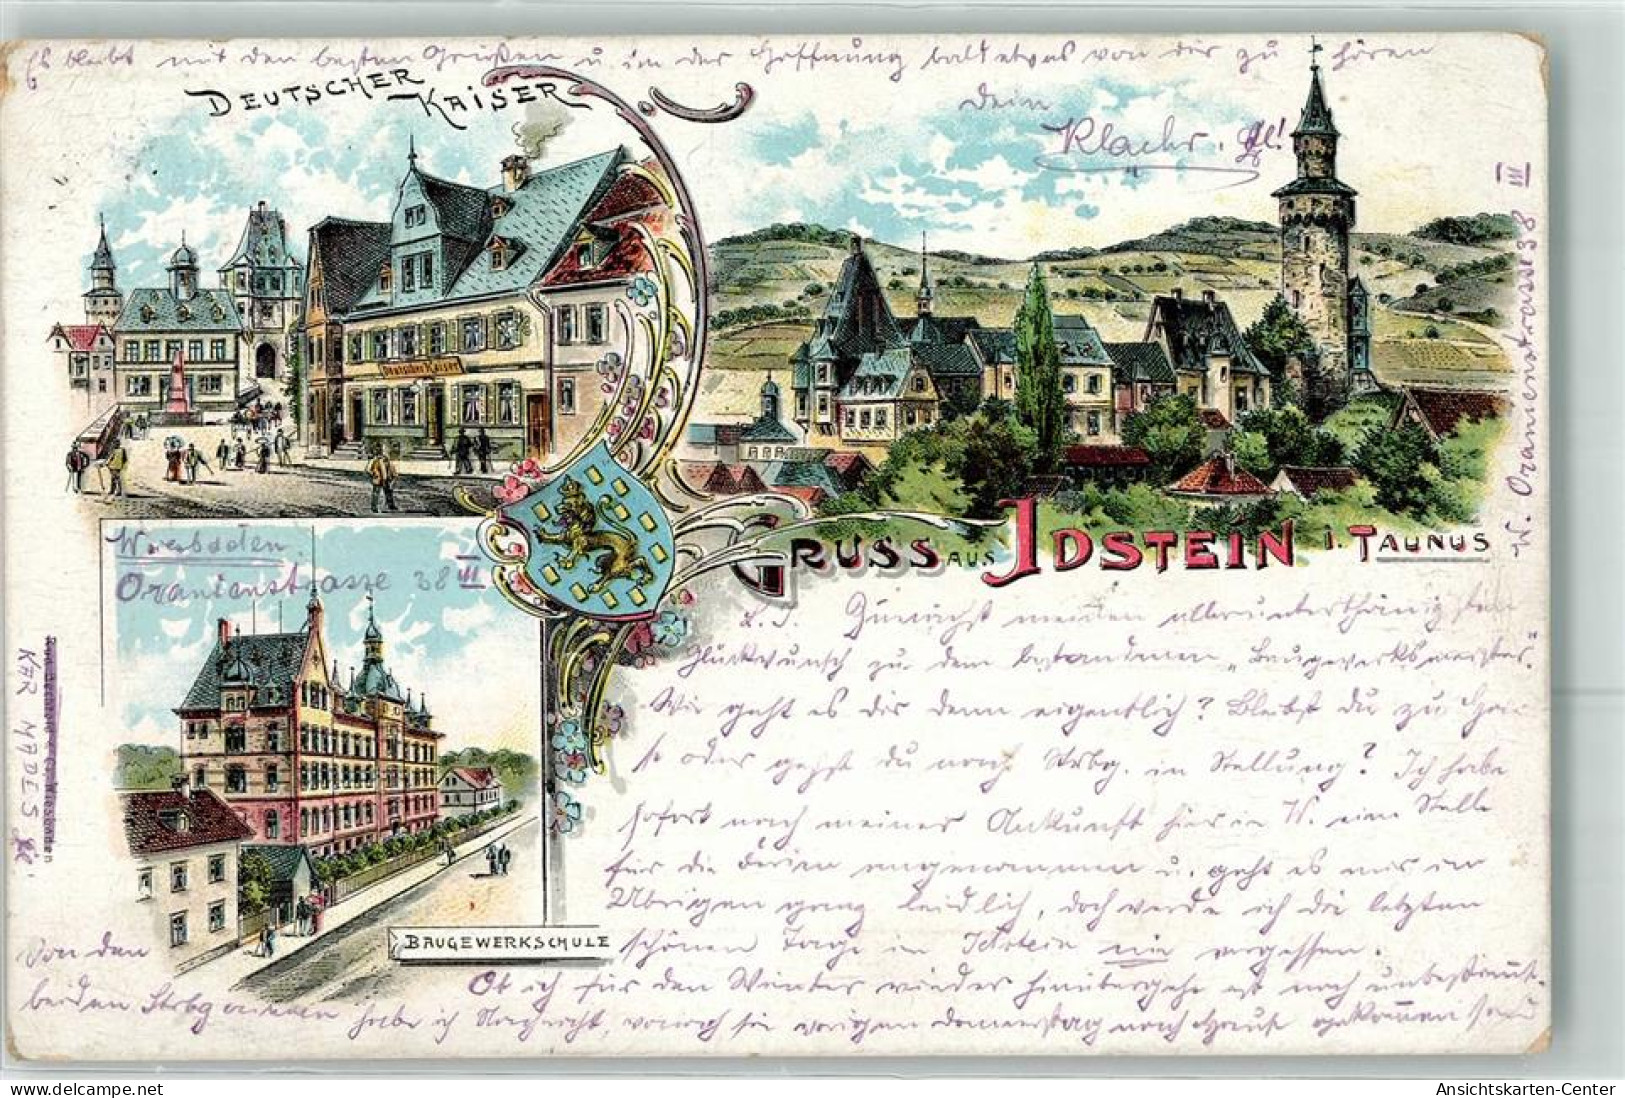 Es bleibt mit den besten Grüßen u. in der Hoffnung bald etwas von dir zu hören
dein
DEUTSCHER KAISER
Deutscher Kaiser
W. Oranienstrasse 38 III
Wiesbaden
Oranienstrasse 38 III
GRUSS AUS IDSTEIN i. TAUNUS
L. J. Zunächst meinen allerunterthänigsten
Glückwunsch zu dem bestandenen „Baugewerksmeister."
Wie geht es dir denn eigentlich? Bleibst du zu Hau-
se oder gehst du nach Strbg. in Stellung? Ich habe
sofort nach meiner Ankunft hier in W. eine Stelle
für die Ferien angenommen u. geht es mir im
Übrigen ganz leidlich, doch werde ich die letzten
schönen Tage in Idstein nie vergessen.
Ob ich für den Winter wieder hinübergehe ist noch unbestimmt.
BAUGEWERKSCHULE
Von den
beiden habe ich Nachricht, wonach sie vorigen Donnerstag nach Hause gekommen sind
Ansichtskarten-Center